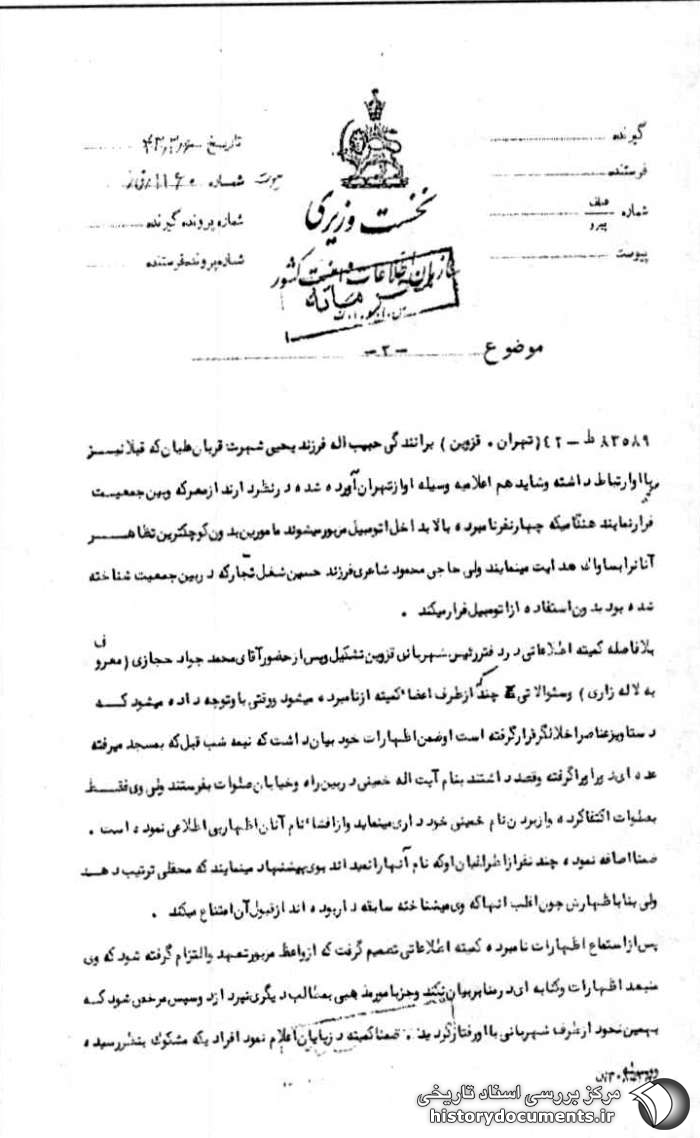 گیرنده
فرستنده
شماره عطف
پیرو
پیوست
تاریخ
شماره
شماره پرونده گیرنده
شماره پرونده فرستنده
نخست وزیری
سازمان اطلاعات و امنیت کشور
موضوع -۲-
۸۳۵۸۹ ط – ۴۲ (تهران . قزوین) برانندگی حبیب اله فرزند یحیی شهرت قربان طلبان که قبلا نیز
با او ارتباط داشته وشاید هم اعلامیه وسیله او از تهران آورده شده در نظر دارند از معرکه وبین جمعیت
فرار نمایند هنگامیکه چهار نفر نامبرده بالا بداخل اتومبیل مزبور میشوند مامورین بدون کوچکترین تظاهر
آنانرا بساواک هدایت مینمایند ولی حاجی محمود شاعری فرزند حسین شغل تجار که در بین جمعیت شناخته
شده بود بدون استفاده از اتومبیل فرار میکند .
بلافاصله کمیته اطلاعاتی در دفتر رئیس شهربانی قزوین تشکیل وپس از حضور آقای محمد جواد حجازی (معروف
به لاله زاری) وسئوالاتی چند از طرف اعضاء کمیته از نامبرده میشود ووقتی باو توجه داده میشود که
دستاویز عناصر اخلالگر قرار گرفته است او ضمن اظهارات خود بیان داشت که نیمه شب قبل که بمسجد میرفته
عده ای دور او را گرفته وقصد داشتند بنام آیت اله خمینی در بین راه وخیابان صلوات بفرستند ولی وی فقط
بصلوات اکتفا کرده واز بردن نام خمینی خود داری مینماید واز افشاء نام آنان اظهار بی اطلاعی نموده است .
ضمنا اضافه نموده چند نفر از اطرافیان او که نام آنها را نمیداند بوی پیشنهاد مینمایند که محفلی ترتیب دهد
ولی بنا باظهارش چون اغلب آنها که وی میشناخته سابقه دار بوده اند از قبول آن امتناع میکند .
پس از استماع اظهارات نامبرده کمیته اطلاعاتی تصمیم گرفت که از واعظ مزبور تعهد والتزام گرفته شود که وی
منبعد اظهارات وکنایه ای در منابر بیان نکند وجز بامور مذهبی بمطالب دیگری نپردازد وسپس مرخص شود که
بهمین نحو از طرف شهربانی با او رفتار گردید . ضمنا کمیته در پایان اعلام نمود افرادیکه مشکوک بنظر رسیده
مرکز بررسی اسناد تاریخی
historydocuments.ir